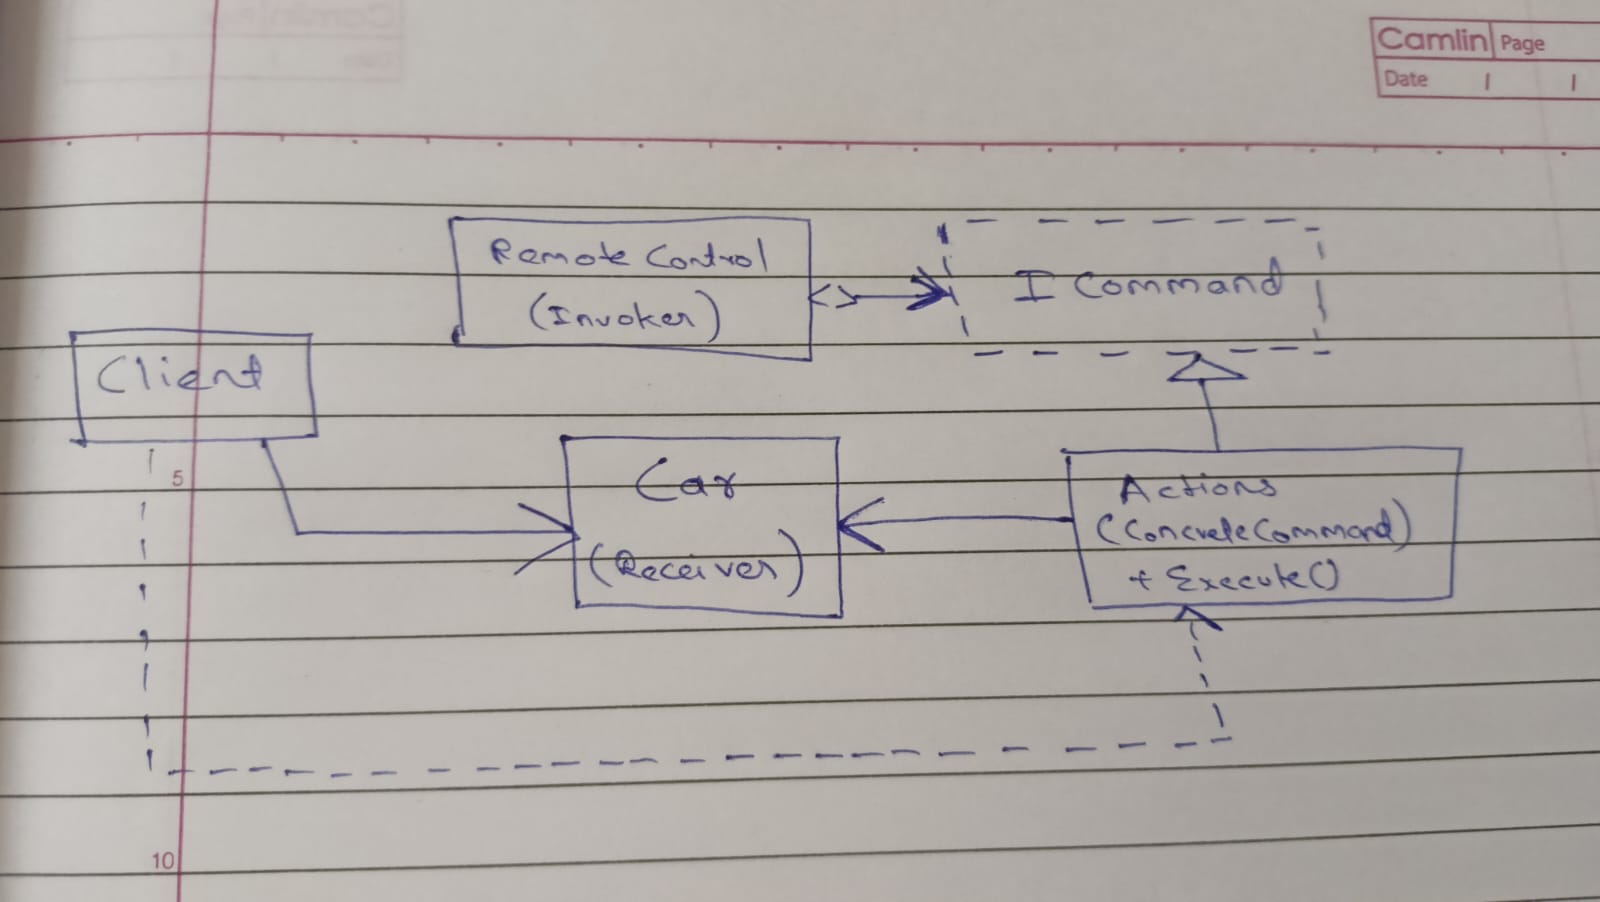 Camlin Page
Date / /
Remote Control
(Invoker)
I Command
Client
Car
(Receiver)
Actions
(Concrete Command)
+ Execute()
5
10